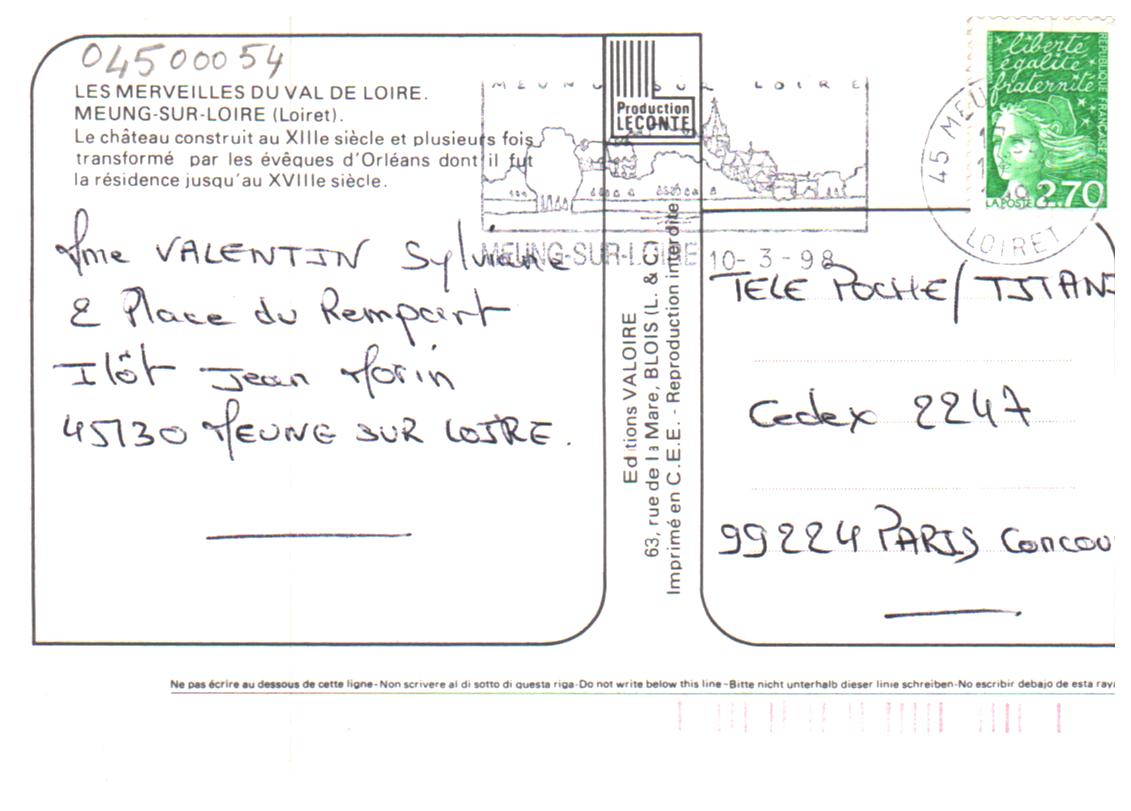 04500054
LES MERVEILLES DU VAL DE LOIRE.
MEUNG-SUR-LOIRE (Loiret).
Le château construit au XIIIe siècle et plusieurs fois
transformé par les évêques d'Orléans dont il fut
la résidence jusqu'au XVIIIe siècle.
Mme VALENTIN Sylviane
2 Place du Rempart
Ilôt Jean Morin
45130 MEUNG SUR LOIRE.
Production
LECONTE
MEUNG SUR LOIRE
MEUNG-SUR-LOIRE 10-3-98
Editions VALOIRE
63, rue de la Mare, BLOIS (L. & C)
Imprimé en C.E.E. - Reproduction interdite
liberté
égalité
fraternité
REPUBLIQUE FRANÇAISE
LA POSTE 2,70
45 MEU
LOIRET
TELE POCHE/TITAN
Cedex 2247
99224 PARIS Concou
Ne pas écrire au dessous de cette ligne-Non scrivere al di sotto di questa riga-Do not write below this line-Bitte nicht unterhalb dieser linie schreiben-No escribir debajo de esta raya